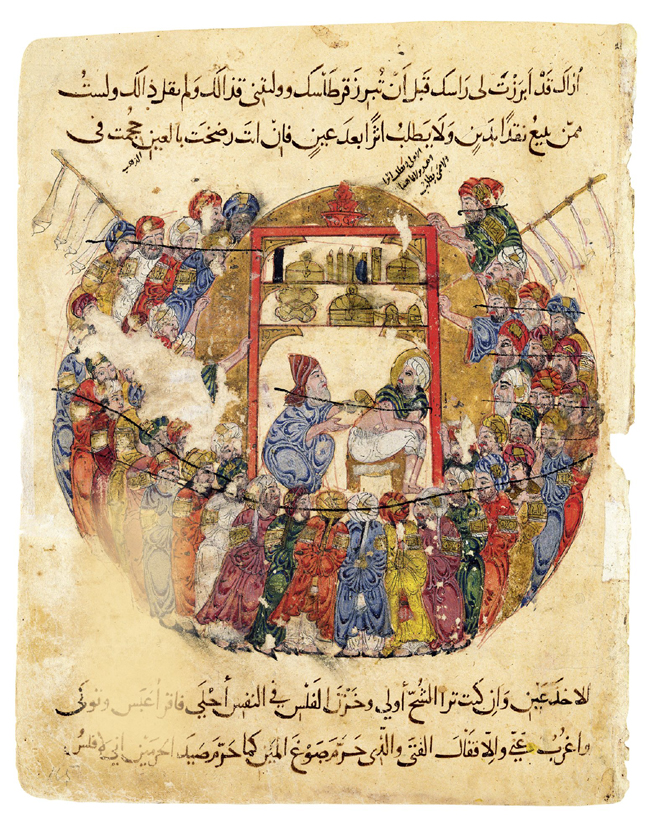 اراك قد ابرزت لى راسك قبل ان تبرز قرطاسك ووليتنى قذالك ولم تقل ذالك ولست
ممن يبيع نقدا بدين ولا يطلب اثرا بعد عين فان انت رضخت بالعين حجمت فى
الذهب
الاخدعين وان كنت ترا الشح أولي وخزن الفلس في النفس أحلي فاقرأ عبس وتولى
واغرب عني والا فقال الفتى والذى حرم صوغ المين كما حرم صيد الحرمين انى لافلس